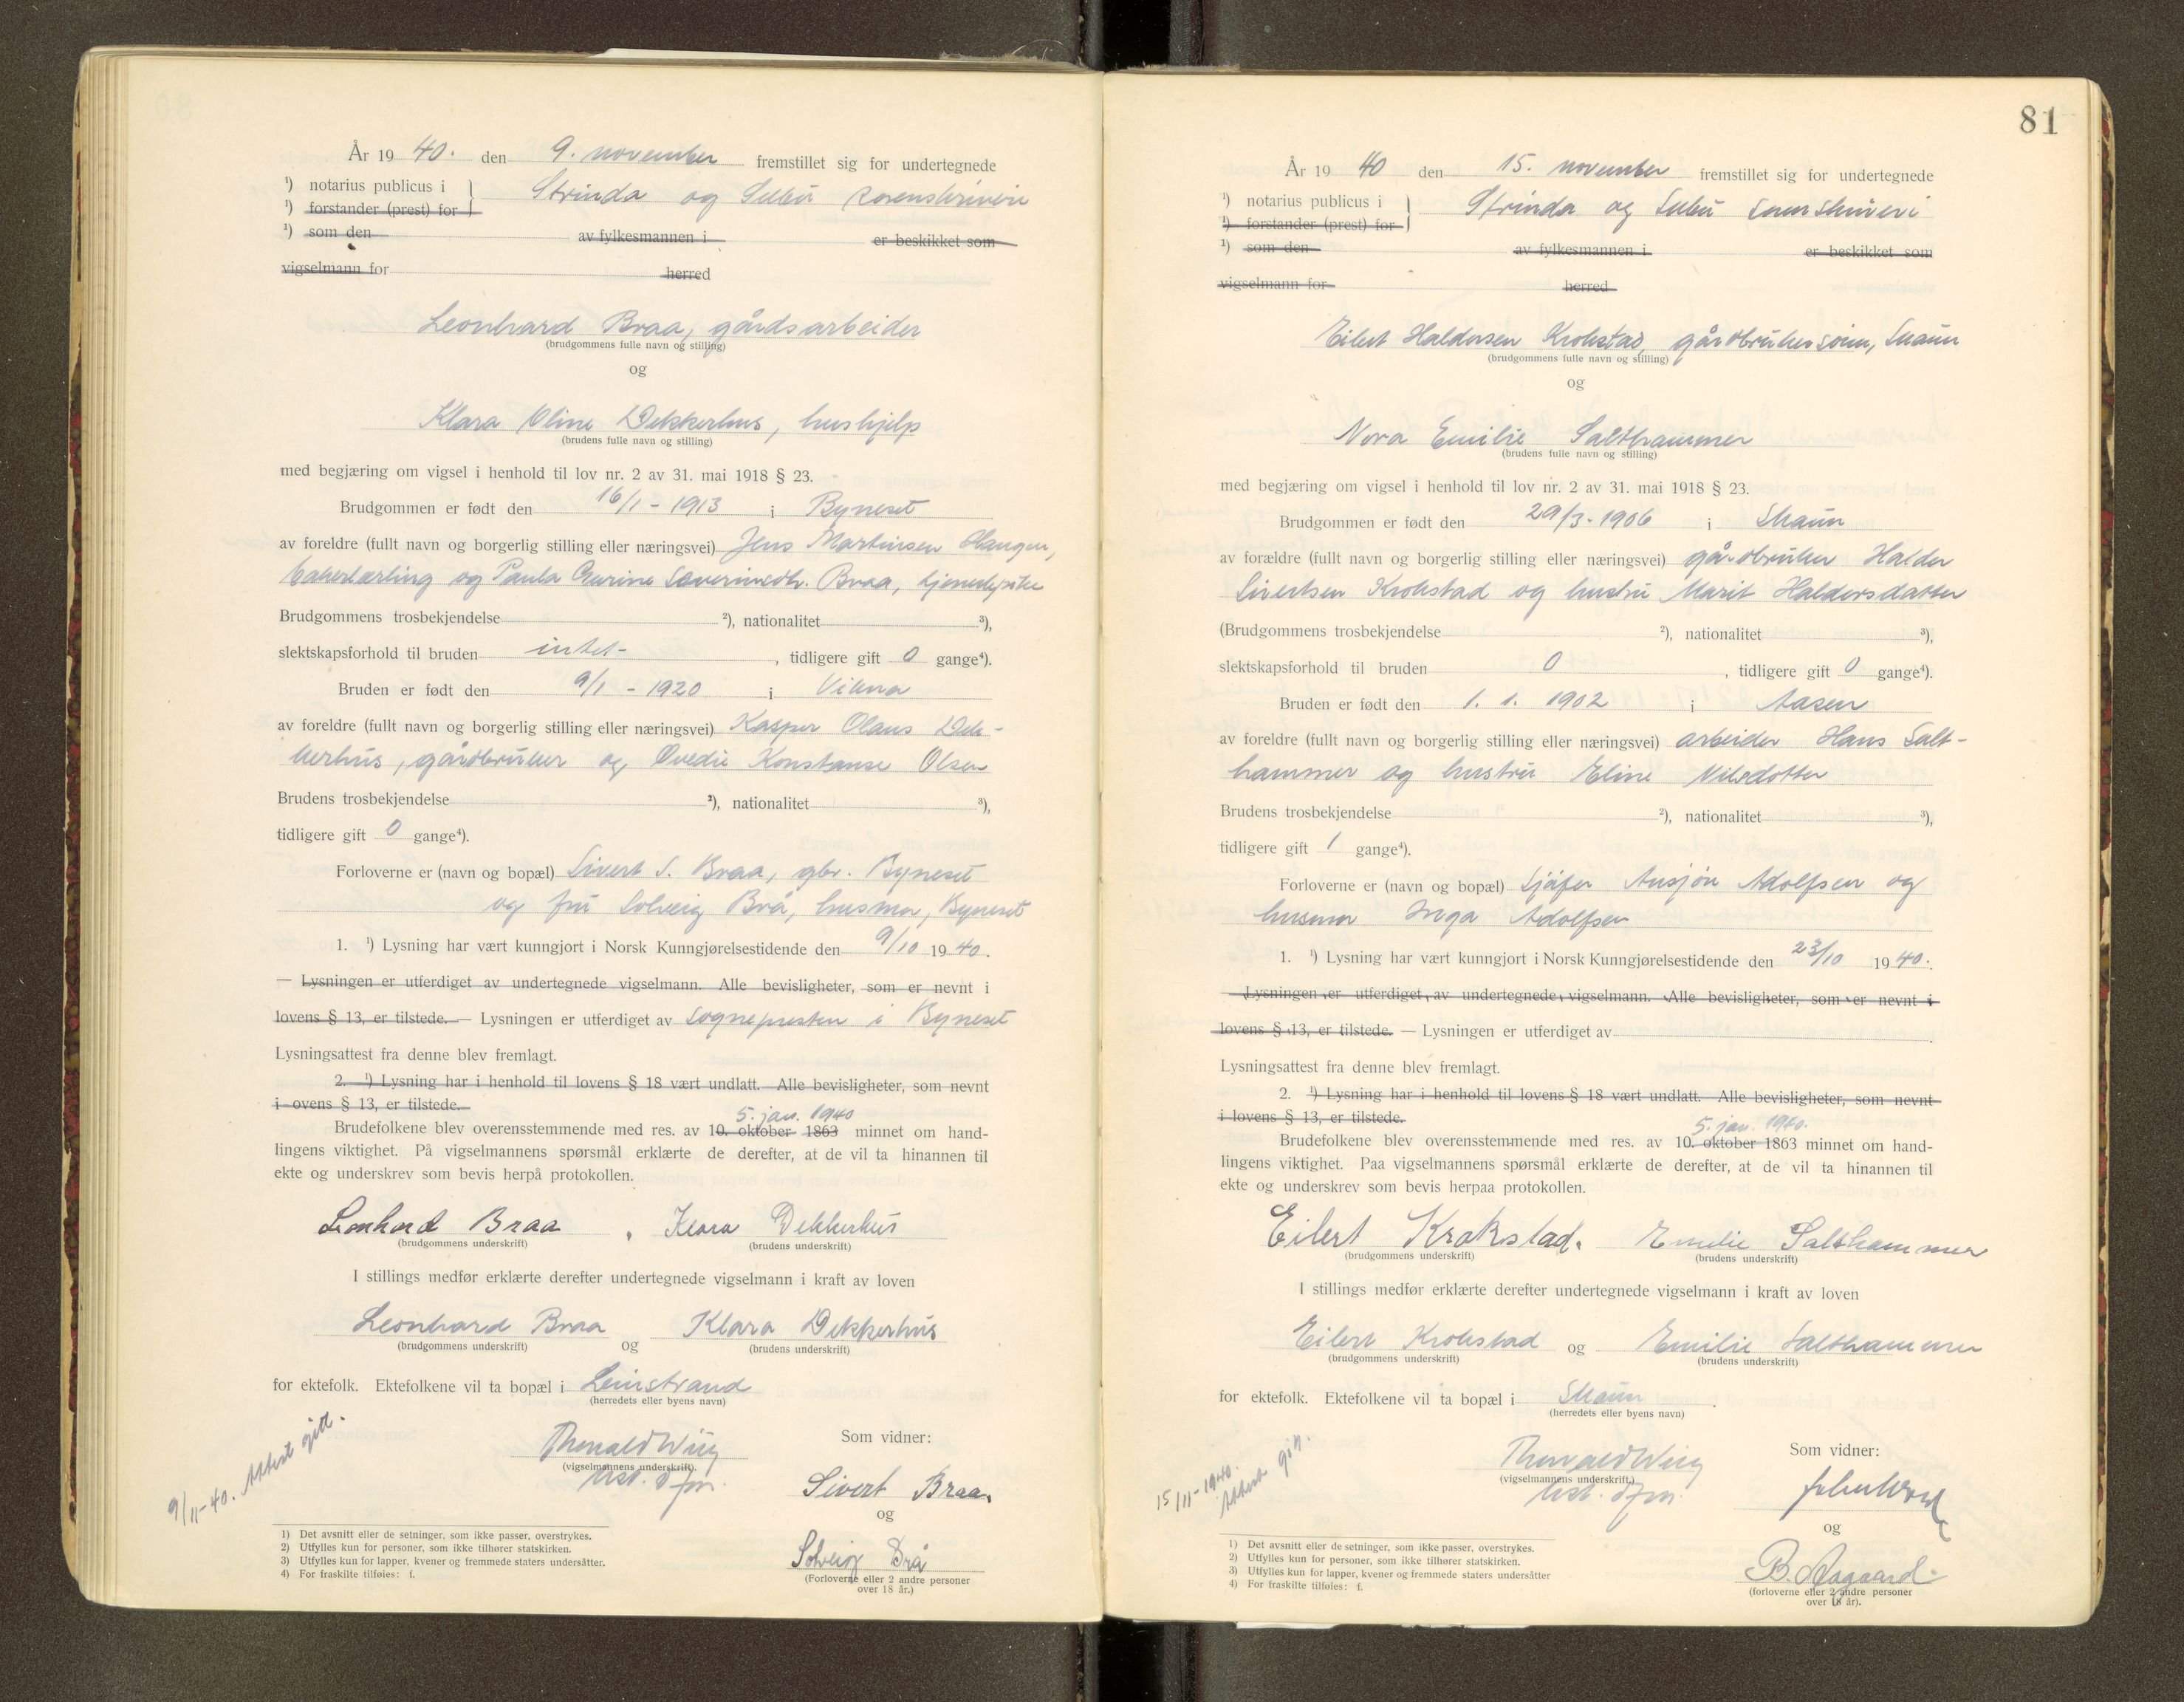 År 19 40. den 9. november fremstillet sig for undertegnede
¹) notarius publicus i } Strinda og Selbu sorenskriveri
¹) forstander (prest) for
¹) som den av fylkesmannen i er beskikket som
vigselmann for herred
Leonhard Braa, gårdsarbeider
(brudgommens fulle navn og stilling)
og
Klara Oline Dekkerhus, hushjelp
(brudens fulle navn og stilling)
med begjæring om vigsel i henhold til lov nr. 2 av 31. mai 1918 § 23.
Brudgommen er født den 16/1 - 1913 i Byneset
av foreldre (fullt navn og borgerlig stilling eller næringsvei) Jens Martinsen Haugen,
bakerlærling og Paula Gurine Severinsdtr. Braa, tjenestepike
Brudgommens trosbekjendelse ²), nationalitet ³),
slektskapsforhold til bruden intet - , tidligere gift 0 gange⁴).
Bruden er født den 9/1 - 1920 i Vikna
av foreldre (fullt navn og borgerlig stilling eller næringsvei) Kasper Olaus Dek-
kerhus, gårdbruker og Ovedie Konstanse Olsen
Brudens trosbekjendelse ²), nationalitet ³),
tidligere gift 0 gange⁴).
Forloverne er (navn og bopæl) Sivert S. Braa, gbr. Byneset
og fru Solveig Brå, husmor, Byneset
1. ¹) Lysning har vært kunngjort i Norsk Kunngjørelsestidende den 9/10 19 40.
— Lysningen er utferdiget av undertegnede vigselmann. Alle bevisligheter, som er nevnt i
lovens § 13, er tilstede. — Lysningen er utferdiget av sognepresten i Byneset
Lysningsattest fra denne blev fremlagt.
2. ¹) Lysning har i henhold til lovens § 18 vært undlatt. Alle bevisligheter, som nevnt
i ovens § 13, er tilstede.
5. jan. 1940
Brudefolkene blev overensstemmende med res. av 10. oktober 1863 minnet om hand-
lingens viktighet. På vigselmannens spørsmål erklærte de derefter, at de vil ta hinannen til
ekte og underskrev som bevis herpå protokollen.
Leonhard Braa . Klara Dekkerhus
(brudgommens underskrift) (brudens underskrift)
I stillings medfør erklærte derefter undertegnede vigselmann i kraft av loven
Leonhard Braa og Klara Dekkerhus
(brudgommens underskrift) (brudens underskrift)
for ektefolk. Ektefolkene vil ta bopæl i Leinstrand
(herredets eller byens navn)
9/11-40. Attest gitt.
Thorvald Wiig
(vigselmannens underskrift).
Som vidner:
Sivert Braa.
og
Solveig Brå
(Forloverne eller 2 andre personer
over 18 år.)
1) Det avsnitt eller de setninger, som ikke passer, overstrykes.
2) Utfylles kun for personer, som ikke tilhører statskirken.
3) Utfylles kun for lapper, kvener og fremmede staters undersåtter.
4) For fraskilte tilføies: f.
81
År 19 40 den 15. november fremstillet sig for undertegnede
¹) notarius publicus i } Strinda og Selbu sorenskriveri
¹) forstander (prest) for
¹) som den av fylkesmannen i er beskikket som
vigselmann for herred
Eilert Haldorsen Krokstad, gårdbrukersønn, Skaun
(brudgommens fulle navn og stilling)
og
Nora Emilie Salthammer
(brudens fulle navn og stilling)
med begjæring om vigsel i henhold til lov nr. 2 av 31. mai 1918 § 23.
Brudgommen er født den 29/3 - 1906 i Skaun
av forældre (fullt navn og borgerlig stilling eller næringsvei) gårdbruker Haldor
Sivertsen Krokstad og hustru Marit Haldorsdatter
(Brudgommens trosbekjendelse ²), nationalitet ³),
slektskapsforhold til bruden 0 , tidligere gift 0 gange⁴).
Bruden er født den 1. 1. 1902 i Aasen
av foreldre (fullt navn og borgerlig stilling eller næringsvei) arbeider Hans Salt-
hammer og hustru Eline Nilsdotter
Brudens trosbekjendelse ²), nationalitet ³),
tidligere gift 1 gange⁴).
Forloverne er (navn og bopæl) sjåfør Ansjön Adolfsen og
husmor Inga Adolfsen
1. ¹) Lysning har vært kunngjort i Norsk Kunngjørelsestidende den 23/10 19 40.
Lysningen er utferdiget av undertegnede vigselmann. Alle bevisligheter, som er nevnt i
lovens § 13, er tilstede. — Lysningen er utferdiget av
Lysningsattest fra denne blev fremlagt.
2. ¹) Lysning har i henhold til lovens § 18 vært undlatt. Alle bevisligheter, som nevnt
i lovens § 13, er tilstede.
5. jan. 1940.
Brudefolkene blev overensstemmende med res. av 10. oktober 1863 minnet om hand-
lingens viktighet. Paa vigselmannens spørsmål erklærte de derefter, at de vil ta hinannen til
ekte og underskrev som bevis herpaa protokollen.
Eilert Krokstad. Emilie Salthammer
(brudgommens underskrift) (brudens underskrift)
I stillings medfør erklærte derefter undertegnede vigselmann i kraft av loven
Eilert Krokstad og Emilie Salthammer
(brudgommens underskrift) (brudens underskrift)
for ektefolk. Ektefolkene vil ta bopæl i Skaun .
(herredets eller byens navn)
15/11-1940.
Attest gitt.
Thorvald Wiig
(vigselmannens underskrift)
Som vidner:
og
B. Aagaard.
(forloverne eller 2 andre personer
over 18 år).
1) Det avsnitt eller de setninger, som ikke passer, overstrykes.
2) Utfylles kun for personer, som ikke tilhører statskirken.
3) Utfylles kun for lapper, kvener og fremmede staters undersåtter
4) For fraskilte tilføies: f.